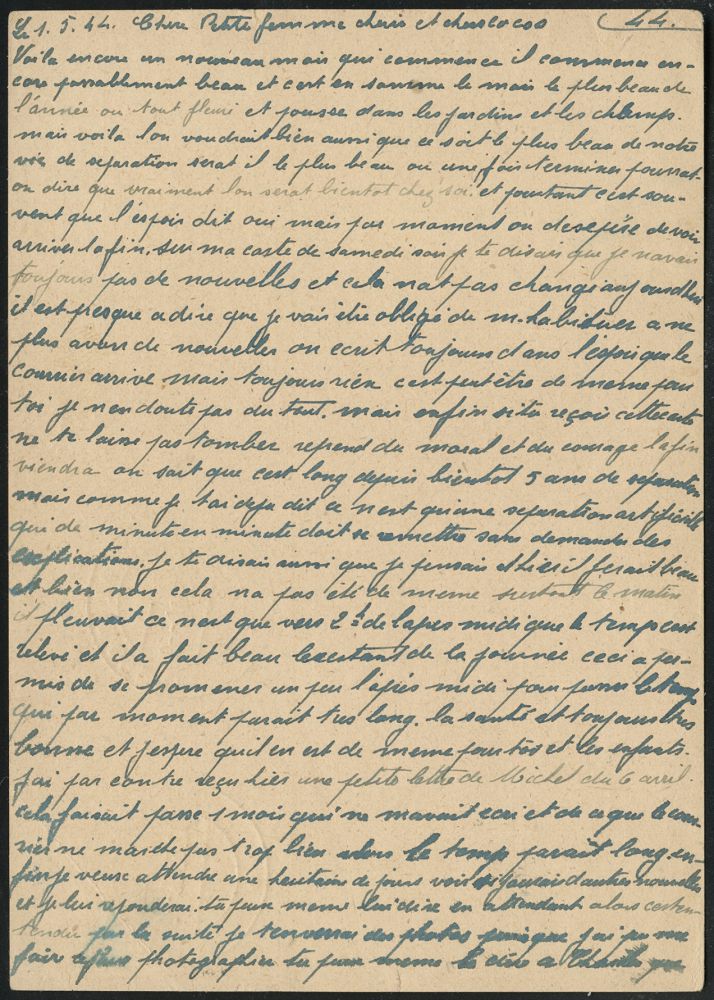 Le 1.5.44. Chere Petite femme cherie et chers cocos 44.
Voila encore un nouveau mois qui commence il commence en-
core passablement beau et cest en somme le mois le plus beau de
l'année ou tout fleuri et pousse dans les jardins et les champs.
mais voila lon voudrait bien aussi que ce soit le plus beau de notre
vie de separation serat il le plus beau ou une fois terminer pourrat-
on dire que vraiment lon serat bientot chez soi. et pourtant cest sou-
vent que l'espoir dit oui mais par moment on desespére de voir
arriver la fin. sur ma carte de samedi soir je te disais que je navais
toujours pas de nouvelles et cela nat pas changé aujourdhui
il est presque a dire que je vais étre obligé de m.habituer a ne
plus avoir de nouvelles on ecrit toujours dans l'éspoir que le
courrier arrive mais toujours rien cest peut étre de meme pour
toi je nen doute pas du tout. mais enfin si tu reçois cette carte
ne te laisse pas tomber reprend du moral et du courage la fin
viendra on sait que cest long depuis bientot 5 ans de separation
mais comme je tai deja dit ce nest quune separation artificielle
qui de minute en minute doit se remettre sans demander des
explications. je te disais aussi que je pensais et hier il ferait beau
et bien non cela na pas été de meme surtout le matin
il pleuvait ce nest que vers 2h de lapres midi que le temps cest
relevé et il a fait beau le restant de la journée ceci a per-
mis de se promener un peu l'aprés midi pour passer le temps
qui par moment parait tres long. la santé est toujours tres
bonne et jespere quil en est de meme pour toi et les enfants.
jai par contre reçu hier une petite lettre de Michel du 6 avril.
cela faisait passe 1 mois quil ne mavait ecrit et de ce que le cour-
rier ne marche pas trop bien alors le temps parait long. en-
fin je veux attendre une huitaine de jours voir si jaurais dautres nouvelles
et je lui reponderai. tu peux meme lui dire en attendant alors cest en-
tendu par la suite je tenverrai des photos puisque jai pu me
faire photographier tu peux meme le dire a Charles que